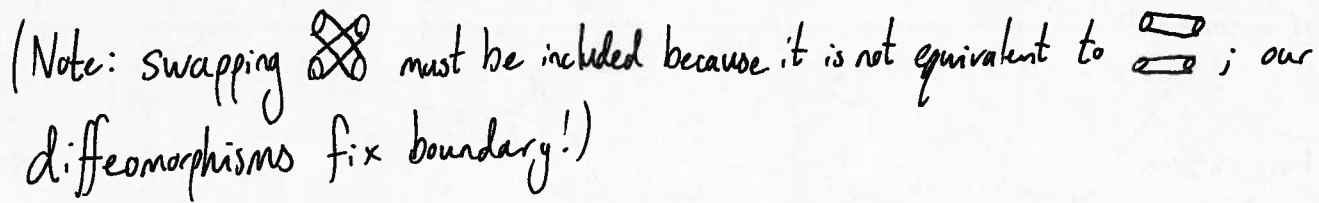 (Note: swapping must be included because it is not equivalent to ; our
diffeomorphisms fix boundary!)